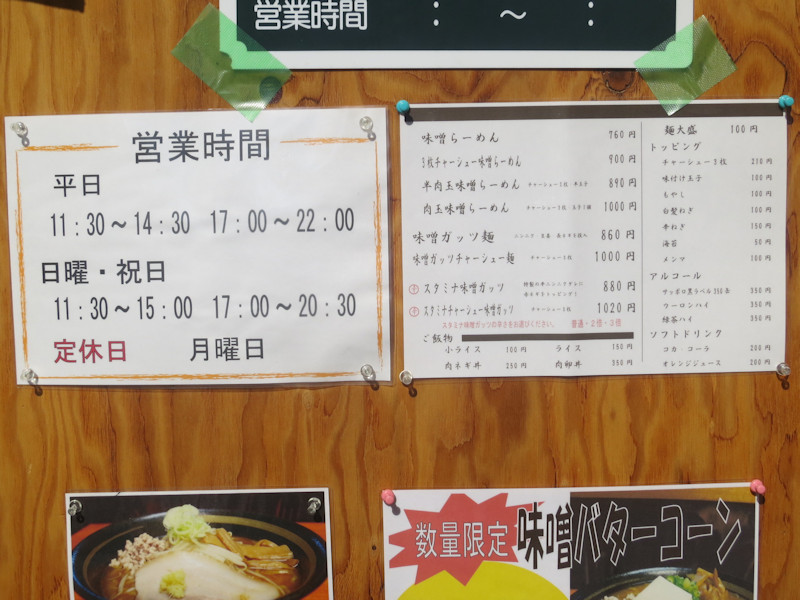 営業時間 : ～ :
営業時間
平日
11:30～14:30 17:00～22:00
日曜・祝日
11:30～15:00 17:00～20:30
定休日 月曜日
味噌らーめん 760円
3枚チャーシュー味噌らーめん 900円
半肉玉味噌らーめん 890円
肉玉味噌らーめん 1000円
味噌ガッツ麺 860円
味噌ガッツチャーシュー麺 1000円
スタミナ味噌ガッツ 880円
スタミナチャーシュー味噌ガッツ 1020円
スタミナ味噌ガッツの辛さをお選びください。 普通・2倍・3倍
ご飯物
小ライス 100円 ライス 150円
肉ネギ丼 250円 肉卵丼 350円
麺大盛 100円
トッピング
チャーシュー2枚 210円
味付け玉子 100円
もやし 100円
白髪ねぎ 100円
辛ねぎ 150円
海苔 50円
メンマ 100円
アルコール
サッポロ黒ラベル350缶 350円
ウーロンハイ 350円
緑茶ハイ 350円
ソフトドリンク
コカ・コーラ 200円
オレンジジュース 200円
数量限定 味噌バターコーン